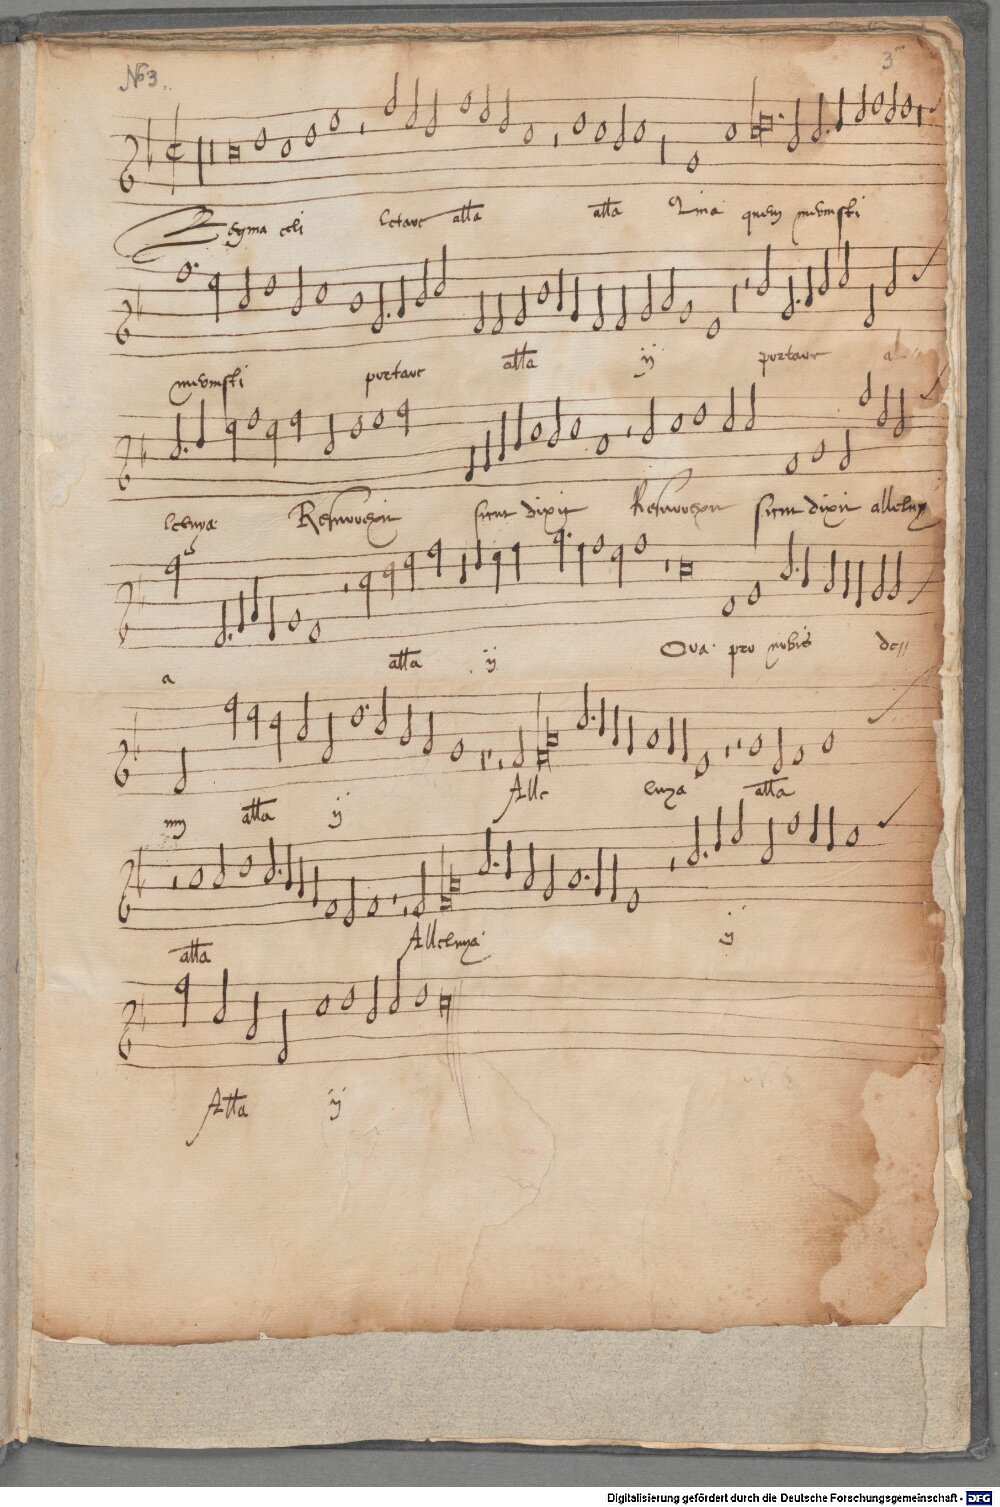 No 3.
3
Regina celi letare alla alla Quia quem meruisti
meruisti portare alla ij portare al
leluya Resurrexit sicut dixit Resurrexit sicut dixit alleluy
a alla ij Ora pro nobis de
um alla ij Alle luya alla
alla Alleluya ij
Alla ij
Digitalisierung gefördert durch die Deutsche Forschungsgemeinschaft - DFG